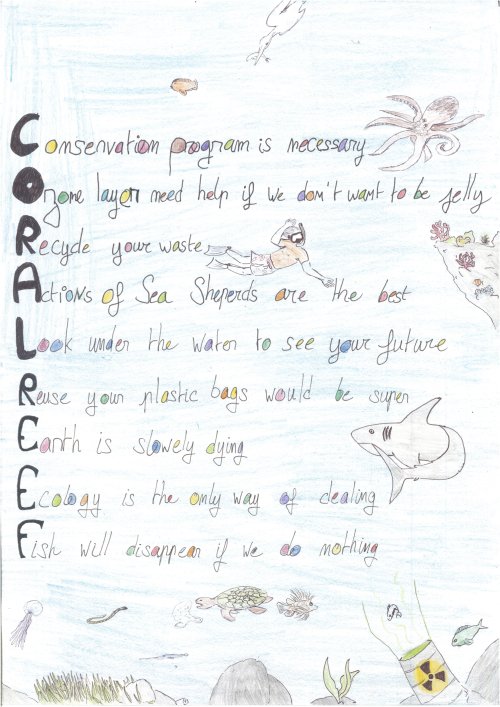 Conservation program is necessary
Ozone layer need help if we don't want to be jelly
Recycle your waste
Actions of Sea Sheperds are the best
Look under the water to see your future
Reuse your plastic bags would be super
Earth is slowely dying
Ecology is the only way of dealing
Fish will disappear if we do nothing